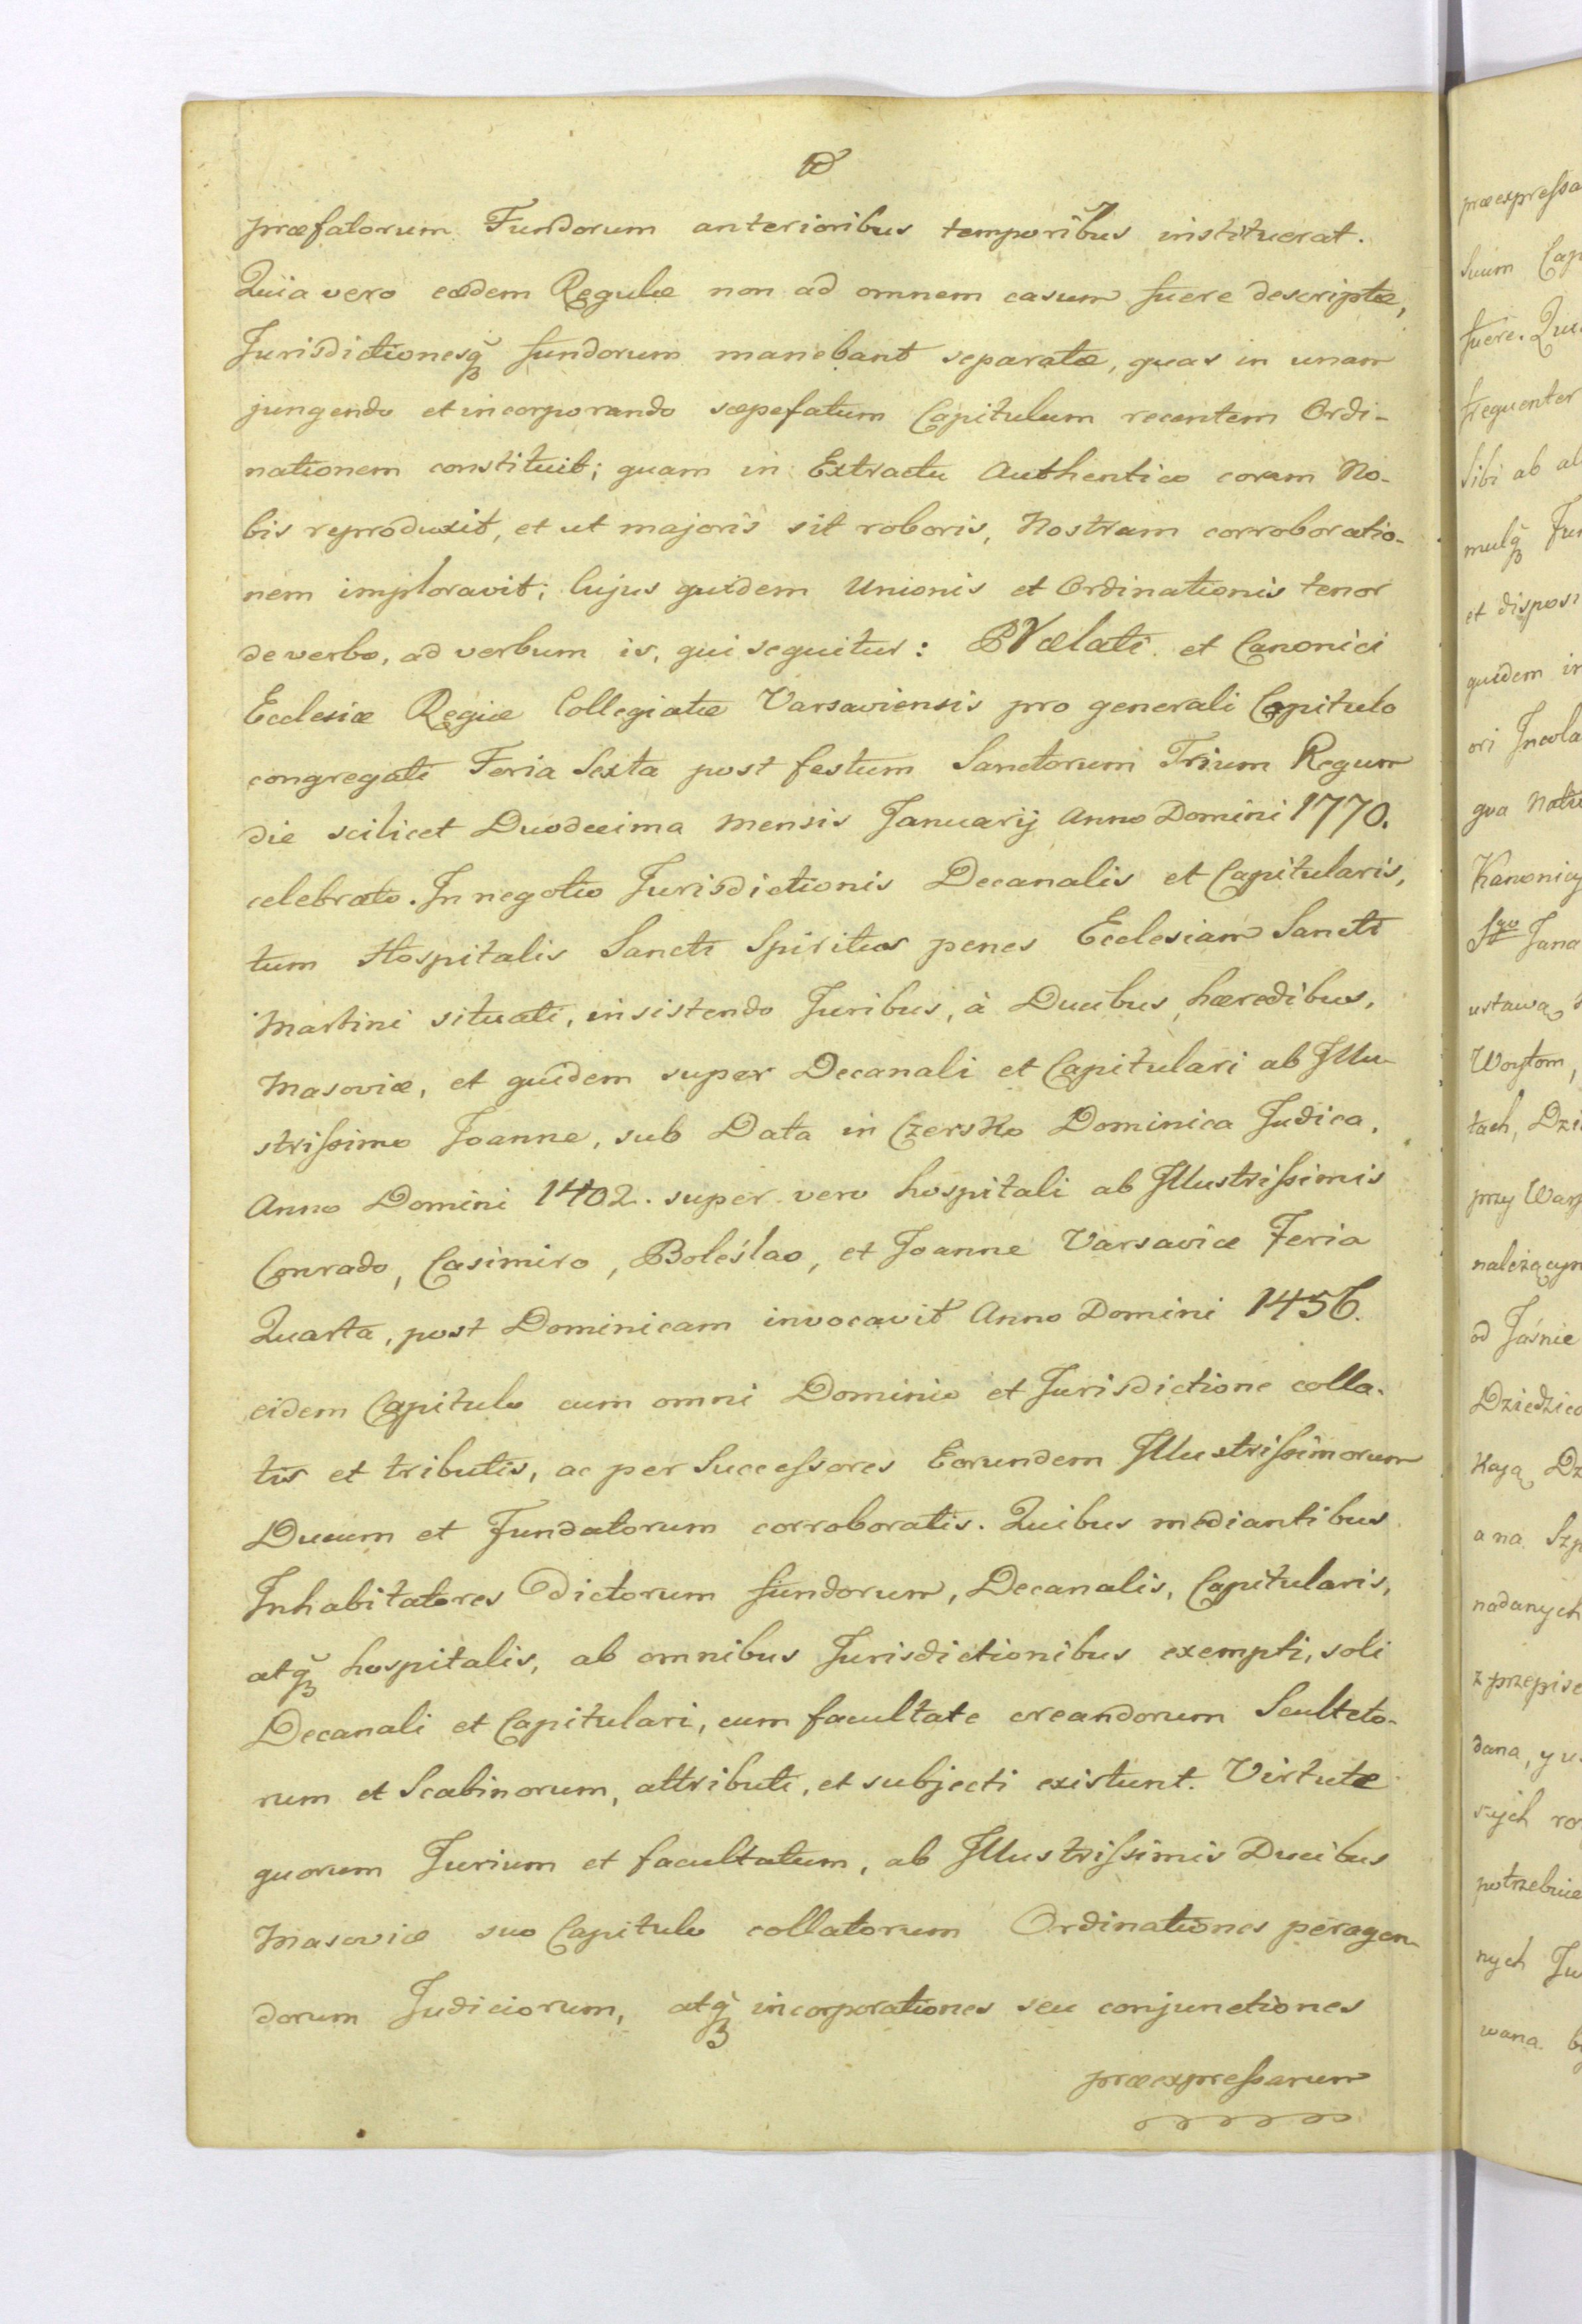 præfatorum Fundorum anterioribus temporibus instituerat.
Quia vero eædem Regulæ non ad omnem casum fuere descriptæ,
Jurisdictionesq̃ fundorum manebant separatæ, quas in unam
jungendo et incorporando sæpefatum Capitulum recentem Ordi-
nationem constituit; quam in Extractu Authentico coram No-
bis reproduxit, et ut majoris sit roboris, Nostram corroboratio-
nem imploravit; Cujus quidem Unionis et Ordinationis tenor
de verbo, ad verbum is, qui sequitur: PRælati et Canonici
Ecclesiæ Regiæ Collegiatæ Varsaviensis pro generali Capitulo
congregati Feria Sexta post festum Sanctorum Trium Regum
die scilicet Duodecima Mensis Januarij Anno Domini 1770.
celebrato. In negotio Jurisdictionis Decanalis et Capitularis,
tum Hospitalis Sancti Spiritus penes Ecclesiam Sancti
Martini situati, insistendo Juribus, à Ducibus, hæredibus,
Masoviæ, et quidem super Decanali et Capitulari ab Illu-
strissimo Joanne, sub Data in Czersko Dominica Judica,
Anno Domini 1402. super vero hospitali ab Illustrissimis
Conrado, Casimiro, Bolesłao, et Joanne Varsaviæ Feria
Quarta, post Dominicam invocavit Anno Domini 1456.
eidem Capitulo cum omni Dominio et Jurisdictione colla-
tis et tributis, ac per Successores Eorundem Illustrissimorum
Ducum et Fundatorum corroboratis. Quibus mediantibus
Inhabitatores Dictorum fundorum, Decanalis, Capitularis,
atq̃ hospitalis, ab omnibus Jurisdictionibus exempti, soli
Decanali et Capitulari, cum facultate creandorum Sculteto-
rum et Scabinorum, attributi, et subjecti existunt. Virtute
quorum Jurium et facultatum, ab Illustrissimis Ducibus
Masoviæ suo Capitulo collatorum Ordinationes peragen-
dorum Judiciorum, atq̃ incorporationes seu conjunctiones
præexpressarum
præexpressa
suum Cap
fuere. Qui
frequenter
sibi ab al
mulq̃ Fun
et disposi
quidem in
ori Incola
qua Natu
Kanonicy
Sgo Jana
ustawą
Woytom,
tach, Dzi
przy Wars
należącym
od Jaśnie
Dziedzico
Kają Dz
a na Szp
nadanych
z przepise
dana, y u
potrzebnie
nych Ju
wana b